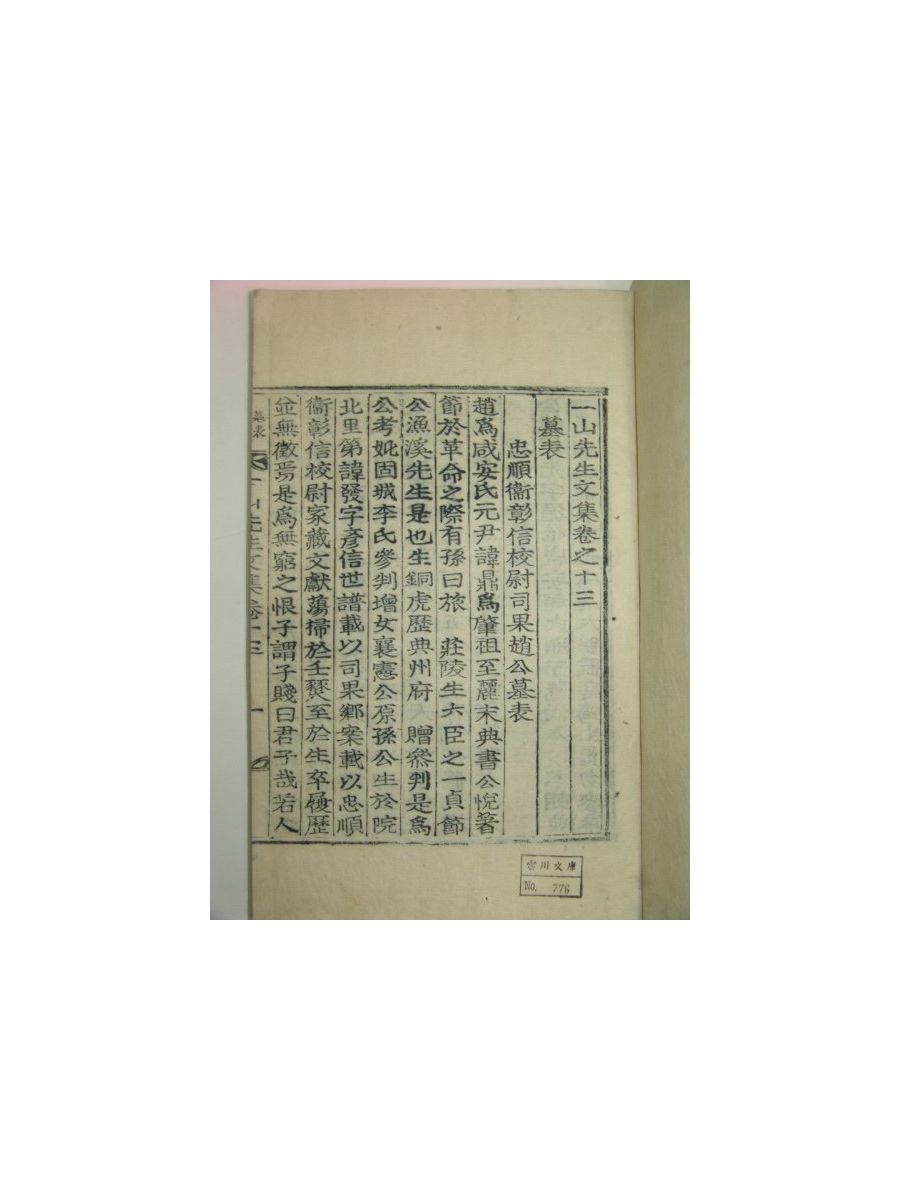 一山先生文集卷之十三
墓表
忠順衞彰信校尉司果趙公墓表
趙爲咸安氏元尹諱鼎爲肇祖至麗末典書公悅著
節於革命之際有孫曰旅 莊陵生六臣之一貞節
公漁溪先生是也生銅虎歷典州府 贈叅判是爲
公考妣固城李氏參判增女襄憲公原孫公生於院
北里第諱發字彥信世譜載以司果鄕案載以忠順
衞彰信校尉家藏文獻蕩掃於壬燹至於生卒履歷
並無徵焉是爲無窮之恨子謂子賤曰君子哉若人
墓表
一山先生文集卷十三
一
文庫
No. 776